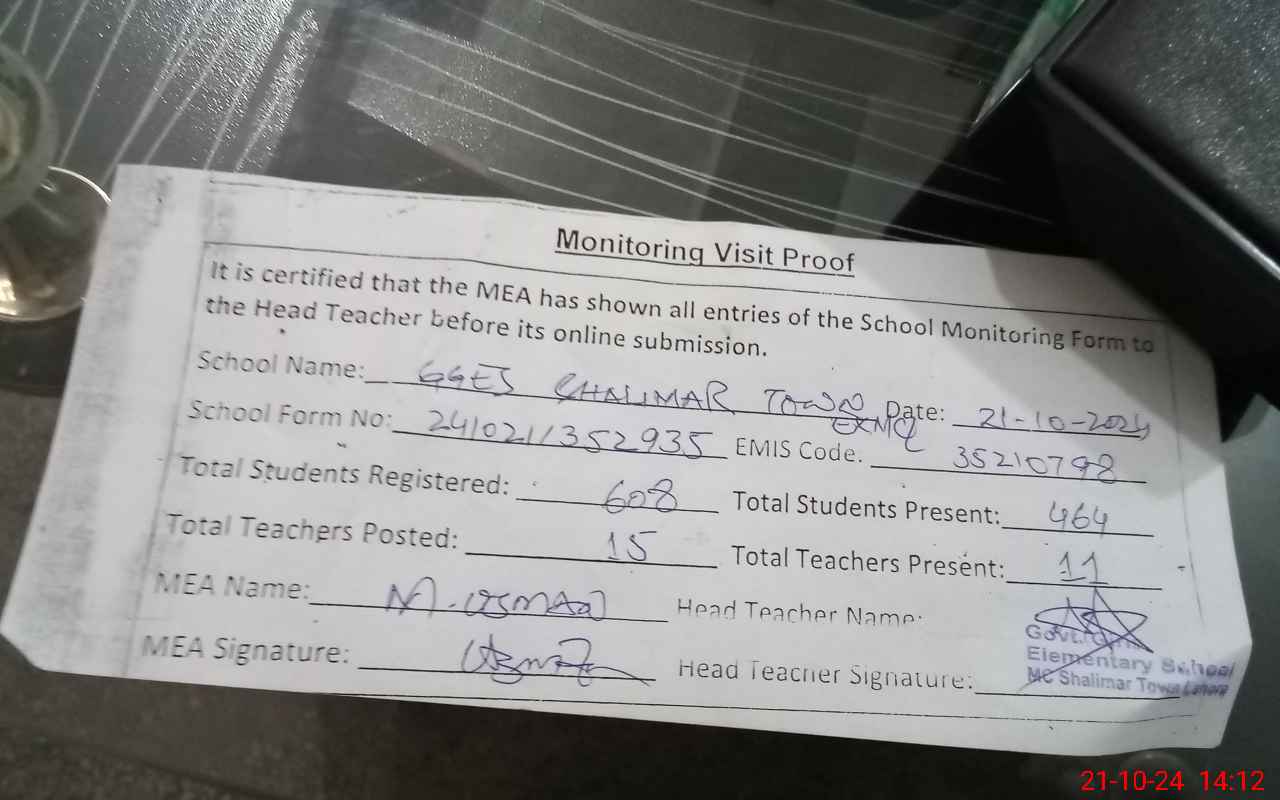 Monitoring Visit Proof
It is certified that the MEA has shown all entries of the School Monitoring Form to
the Head Teacher before its online submission.
School Name: GGES SHALIMAR TOWN Date: 21-10-2024
School Form No: 241021/352935 EMIS Code. 35210798
Total Students Registered: 608 Total Students Present: 464
Total Teachers Posted: 15 Total Teachers Present: 11
MEA Name: M. USMAN Head Teacher Name:
MEA Signature: Head Teacher Signature:
Govt.
Elementary School
MC Shalimar Town Lahore
21-10-24 14:12